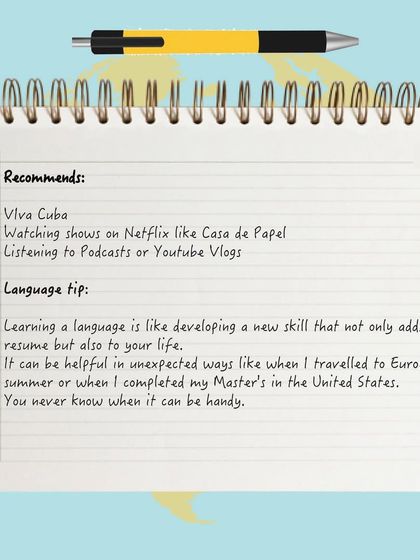 Recommends:
VIva Cuba
Watching shows on Netflix like Casa de Papel
Listening to Podcasts or Youtube Vlogs
Language tip:
Learning a language is like developing a new skill that not only
resume but also to your life.
It can be helpful in unexpected ways like when I travelled to
summer or when I completed my Master's in the United States.
You never know when it can be handy.